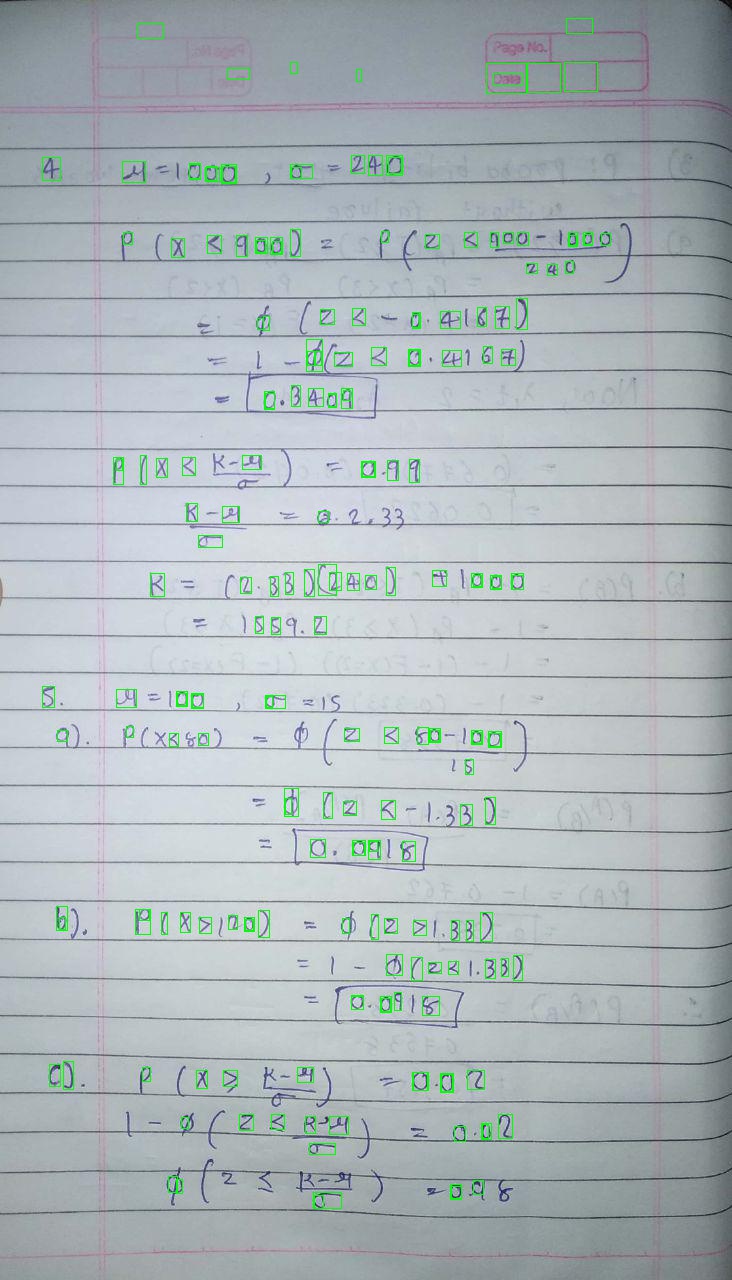 Page No.
Date
4. μ = 1000 , σ = 240
P ( X < 900 ) = P ( Z < 900 - 1000 / 240 )
= φ ( Z < - 0.4167 )
= 1 - φ ( Z < 0.4167 )
= 0.3409
P ( X < K-μ / σ ) = 0.99
K-μ / σ = 2.33
K = (2.33)(240) + 1000
= 1559.2
5. μ = 100 , σ = 15
a). P(X<80) = φ ( Z < 80-100 / 15 )
= φ ( Z < -1.33 )
= 0.0918
b). P( X > 120 ) = φ ( Z > 1.33 )
= 1 - φ ( Z < 1.33 )
= 0.0918
c). P ( X ≥ K-μ / σ ) = 0.02
1 - φ ( Z ≤ K-μ / σ ) = 0.02
φ ( Z ≤ K-μ / σ ) = 0.98